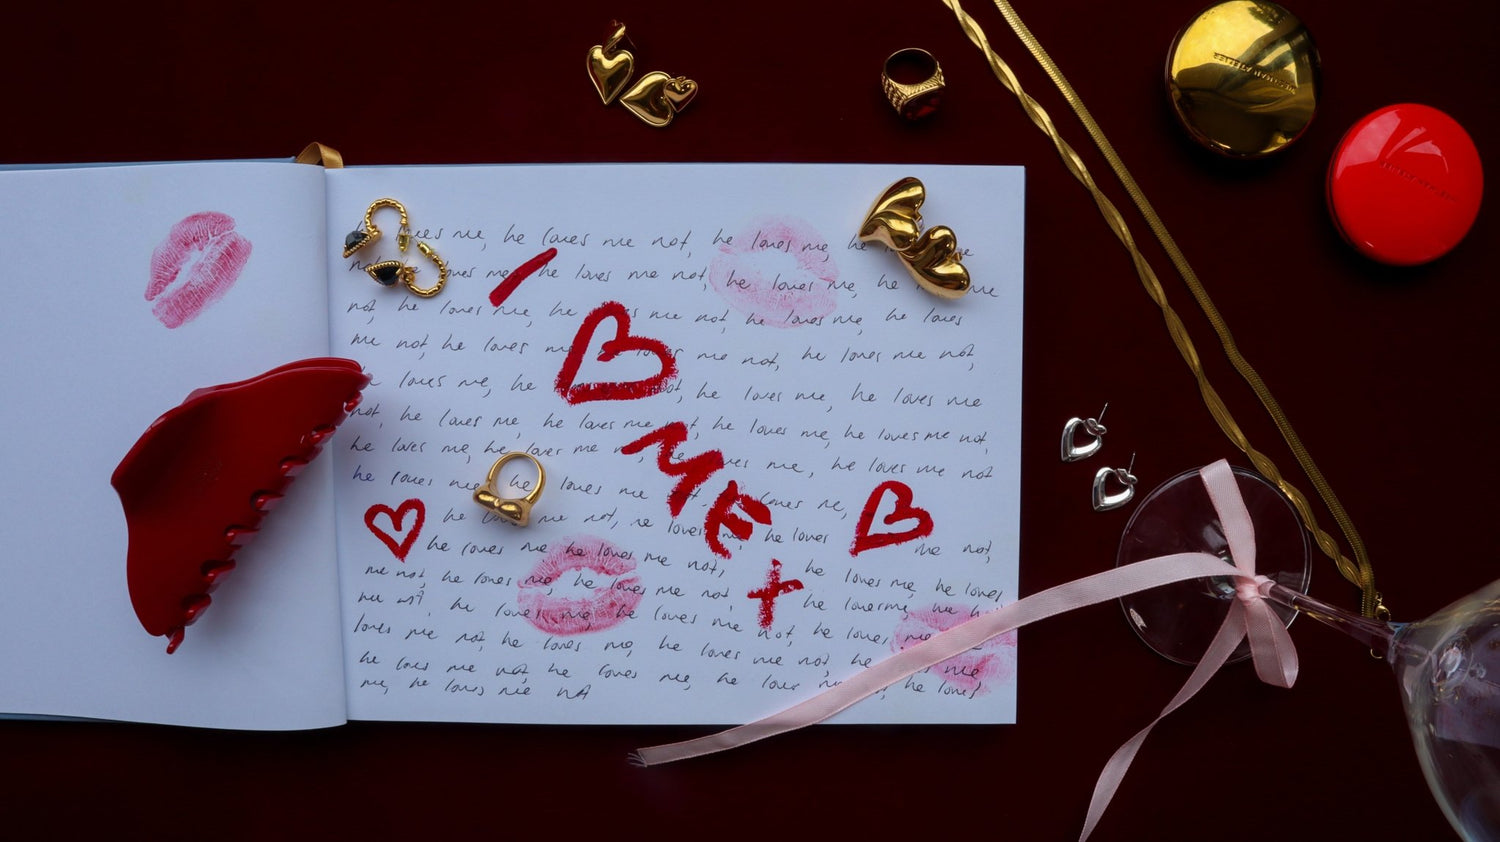 loves me, he loves me not, he loves me, he me
loves me, he loves me not, he loves me, he me
not, he loves me, he me not, he loves me, he loves
me not, he loves me not, he loves me not,
loves me, he not, he loves me, he loves me
not, he loves me, he loves me not, he loves me, he loves me not,
he loves me, he loves me loves me, he loves me not
he loves me he loves me not, loves me,
he loves me not, he loves me, he loves me not,
he loves me he loves me not, he loves me, he loves
me not, he loves me, he loves me not, he loves me,
me not, he loves me, he loves me not, he loves me
loves me not, he loves me, he loves me not, he me,
he loves me not, he loves me, he he loves
me, he loves me not
I
ME
+
WESTMAN ATELIER